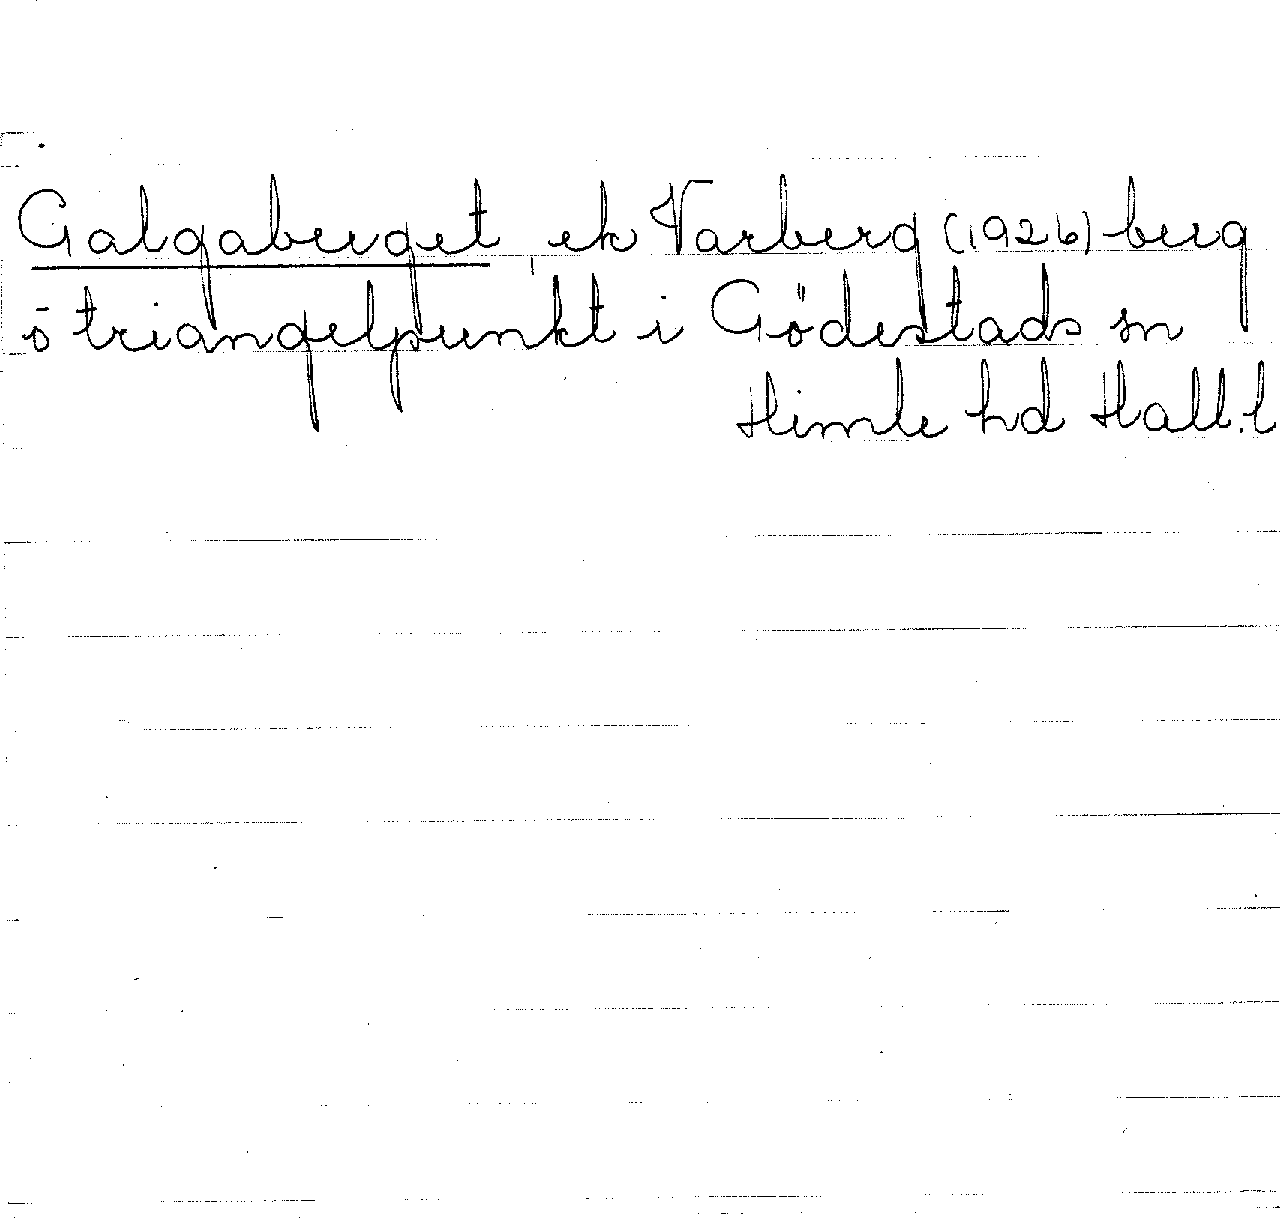 Galgaberget ek Varberg (1926) berg
ö triangelpunkt i Gödestads sn
Himle hd Hall.l